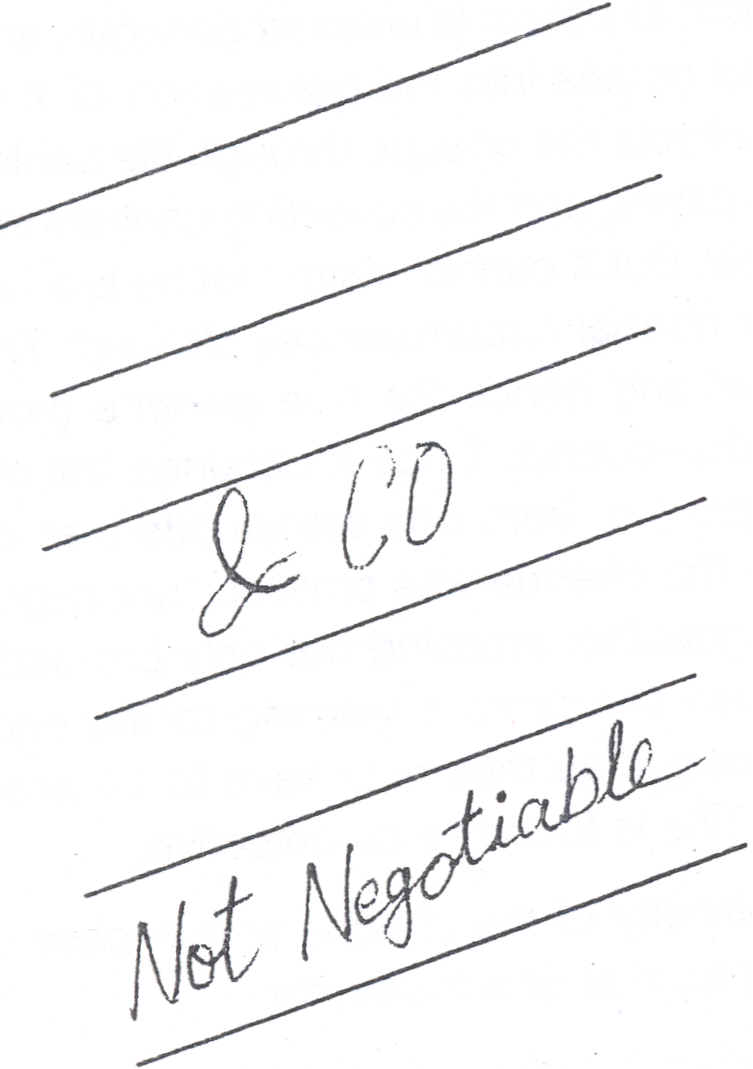 & CO
Not Negotiable